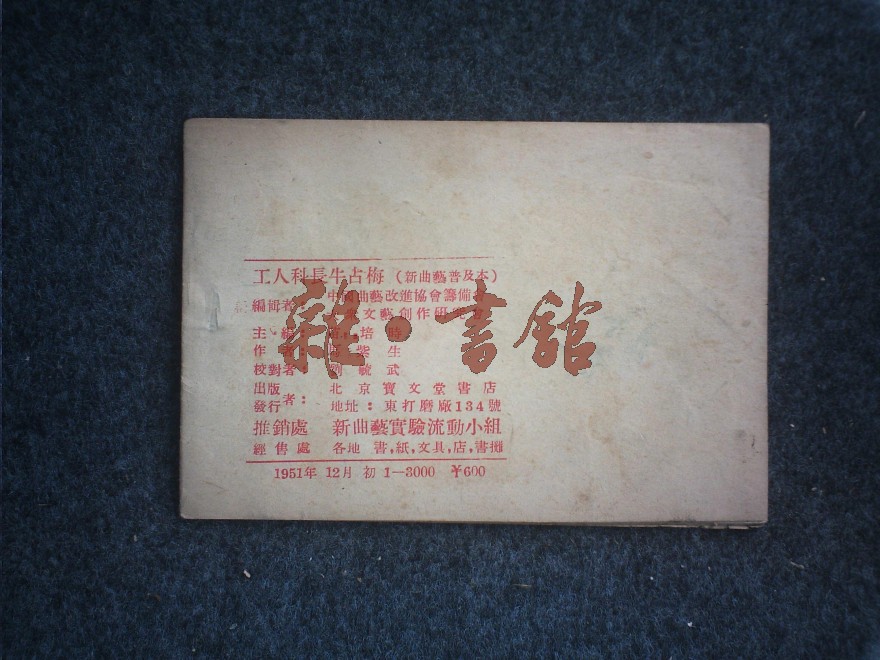 工人科長牛占梅（新曲藝普及本）
編輯者： 中國曲藝改進協會籌備會
文藝創作研究會
主編： 培時
作者： 紫生
校對者： 劉毓武
出版
發行者： 北京寶文堂書店
地址：東打磨廠134號
推銷處 新曲藝實驗流動小組
經售處 各地 書，紙，文具，店，書攤
1951年 12月 初 1—3000 ￥600
雜·書館